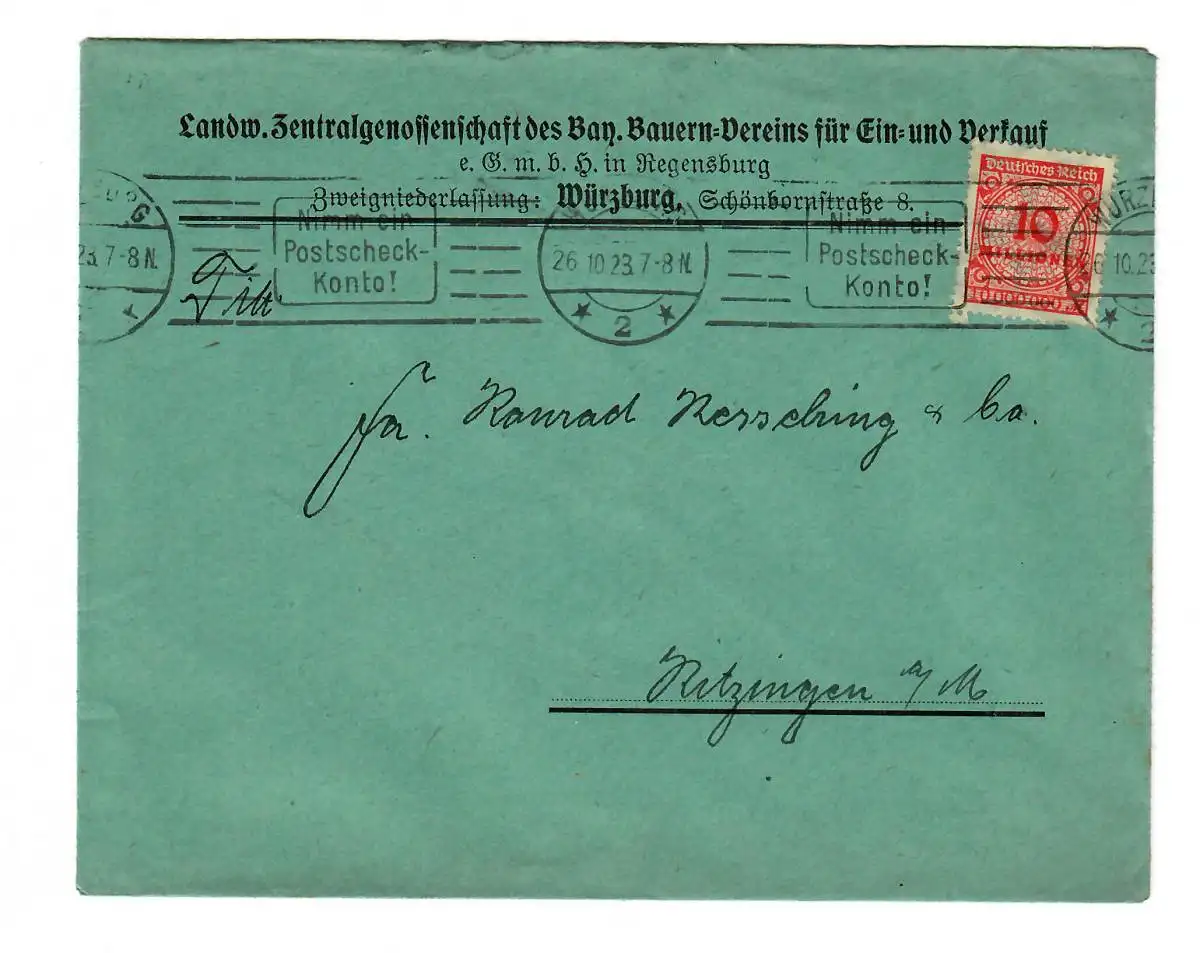 Landw. Zentralgenossenschaft des Bay. Bauern=Vereins für Ein= und Verkauf
e. G. m. b. H. in Regensburg
Zweigniederlassung: Würzburg, Schönbornstraße 8.
Deutsches Reich
10
MILLIONEN
23. 7-8 N.
Nimm ein
Postscheck-
Konto!
26 10.23. 7-8 N.
2
Nimm ein
Postscheck-
Konto!
WÜRZ
26 10.23
2
Fa. Konrad Kessching & Co.
Kitzingen a/M